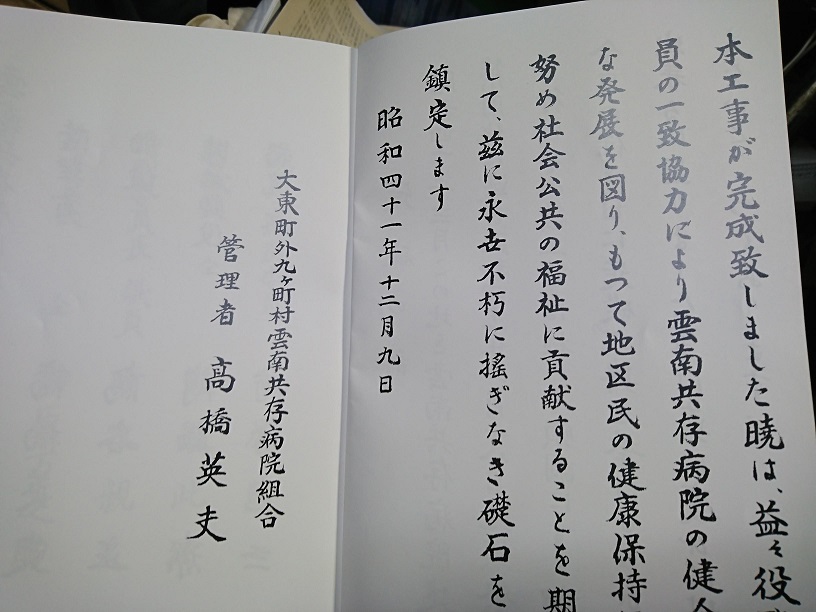 本工事が完成致しました暁は、益々役
員の一致協力により雲南共存病院の健
な発展を図り、もつて地区民の健康保持
努め社会公共の福祉に貢献することを期
して、茲に永世不朽に搖ぎなき礎石を
鎮定します
昭和四十一年十二月九日
大東町外九ヶ町村雲南共存病院組合
管理者 高橋英夫